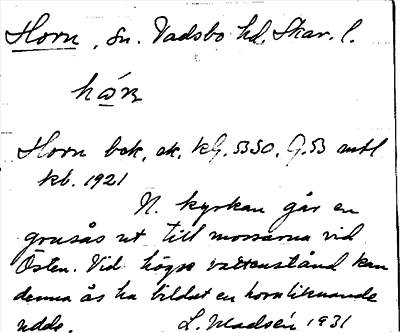 Horn, sn. Vadsbo hd. Skar. l.
hạ́ɳ
Horn bek, ek. kG. 5350. G. 53 antl
kb. 1921
N. kyrkan går en
grusås ut till mossarna vid
Östen. Vid högre vattenstånd kan
denna ås ha bildat en hornliknande
udde. L. Madsén 1931